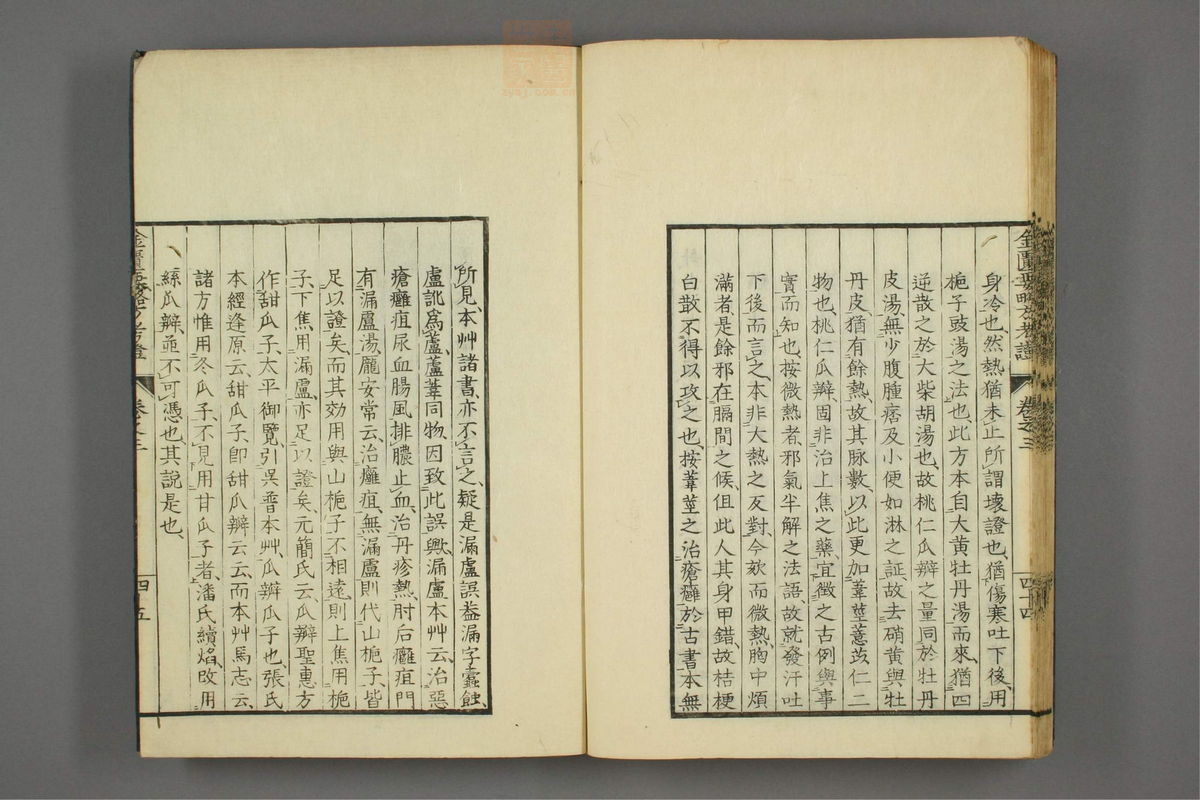 金匱要略方考證
卷之三
四十四
身冷也然熱猶未止所謂壞證也猶傷寒吐下後用
梔子豉湯之法也此方本自大黄牡丹湯而來猶四
逆散之於大柴胡湯也故桃仁瓜瓣之量同於牡丹
皮湯無少腹腫痞及小便如淋之証故去硝黄與牡
丹皮猶有餘熱故其脉數以此更加葦莖薏苡仁二
物也桃仁瓜瓣固非治上焦之藥宜徵之古例與事
實而知也按微熱者邪氣半解之法語故就發汗吐
下後而言之本非大熱之反對今欬而微熱胸中煩
滿者是餘邪在膈間之候但此人其身甲錯故桔梗
白散不得以攻之也按葦莖之治瘡癰於古書本無
所見本艸諸書亦不言之疑是漏盧誤益漏字蠧蝕
盧訛爲蘆蘆葦同物因致此誤歟漏盧本艸云治惡
瘡癰疽尿血腸風排膿止血治丹疹熱肘后癰疽門
有漏盧湯龐安常云治癰疽無漏盧則代山梔子皆
足以證矣而其効用與山梔子不相遠則上焦用梔
子下焦用漏盧亦足以證矣元簡氏云瓜瓣聖惠方
作甜瓜子太平御覽引吳普本艸瓜瓣瓜子也張氏
本經逢原云甜瓜子即甜瓜瓣云云而本艸馬志云
諸方惟用冬瓜子不見用甘瓜子者潘氏續焰改用
絲瓜瓣並不可憑也其説是也
金匱要略方考證
卷之三
四十五